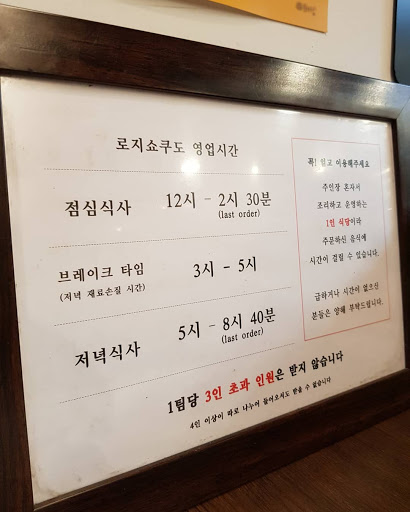 로지쇼쿠도 영업시간
점심식사 12시 - 2시 30분
(last order)
브레이크 타임 3시 - 5시
(저녁 재료손질 시간)
저녁식사 5시 - 8시 40분
(last order)
1팀당 3인 초과 인원은 받지 않습니다
4인 이상이 따로 나누어 들어오셔도 받을 수 없습니다
꼭! 읽고 이용해주세요
주인장 혼자서
조리하고 운영하는
1인 식당이라
주문하신 음식에
시간이 걸릴 수 있습니다.
급하거나 시간이 없으신
분들은 양해 부탁드립니다.